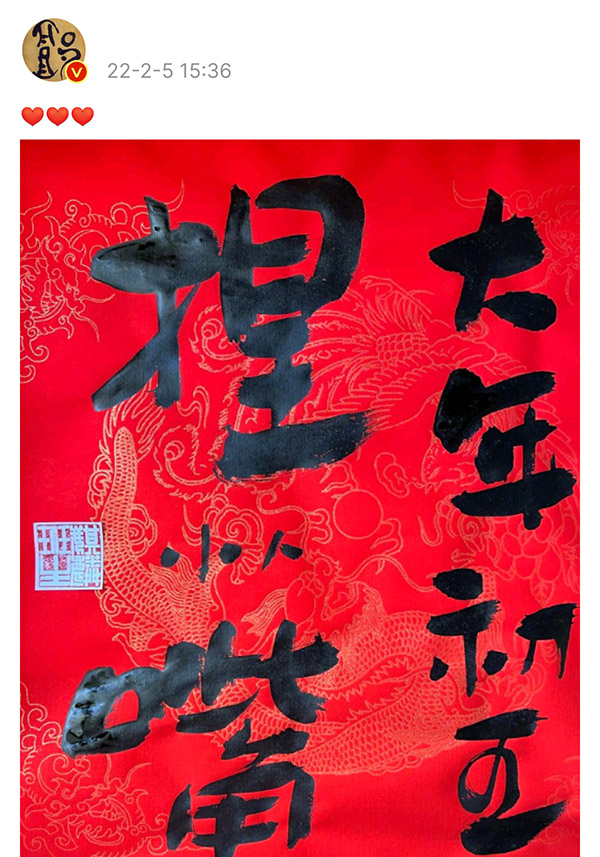 22-2-5 15:36
❤️❤️❤️
大年初五
捏小人嘴